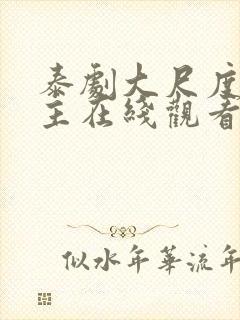 泰劇大尺度
主在綫觀看
似水年華流年